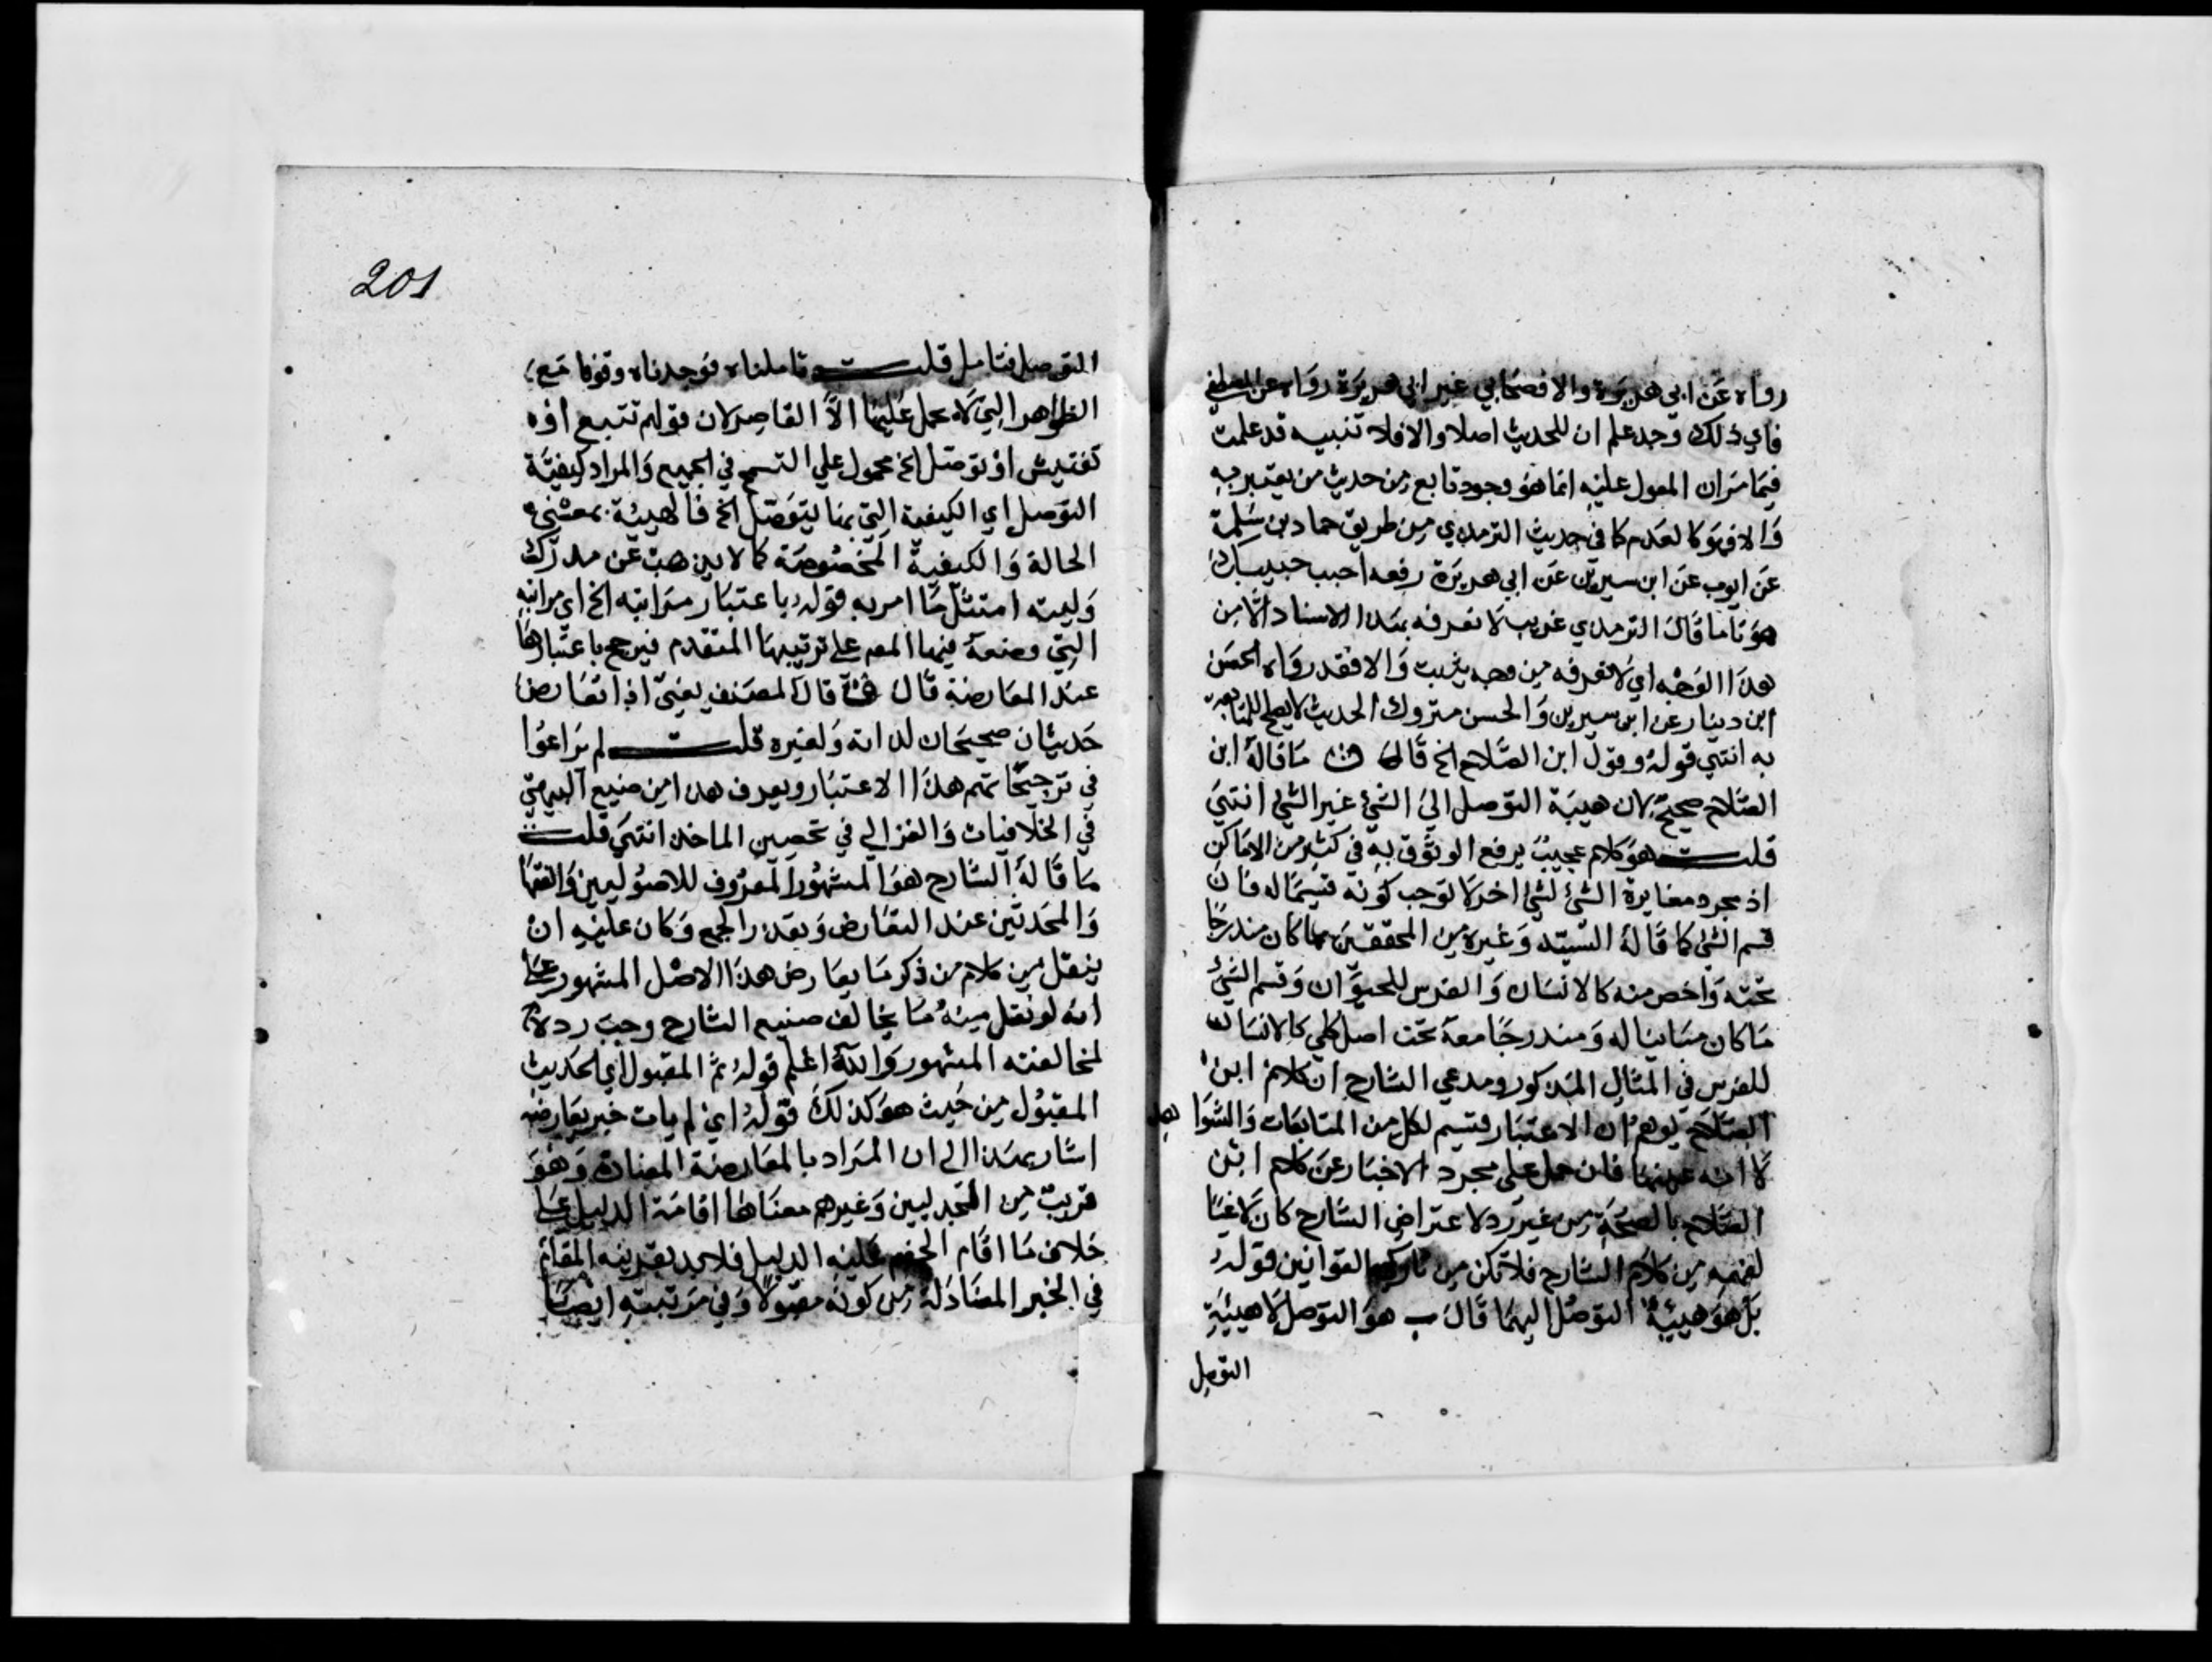 رواه عن ابي هريرة والا فصحابي غير ابي هريرة رواه عن المصطفي
فاي ذلك وجد علم ان للحديث اصلا والا فلا تنبيه قد علمت
فيما مر ان المعول عليه انما هو وجود تابع من حديث من يعتبر به
والا فهو كالعدم كما في حديث الترمذي من طريق حماد بن سلمة
عن ايوب عن ابن سيرين عن ابي هريرة رفعه احبب حبيبك
هونا ما قال الترمذي غريب لا نعرفه بهذا الاسناد الا من
هذا الوجه اي لا نعرفه من وجه يثبت والا فقد رواه الحسن
ابن دينار عن ابن سيرين والحسن متروك الحديث لا يصلح للمتابعة
به انتهي قوله وقول ابن الصلاح الخ قال ما قاله ابن
الصلاح صحيح لان هيبة التوصل الي الشئ غير الشئ انتهي
قلت هو كلام عجيب يرفع الوثوق به في كثير من الاماكن
اذ مجرد مغايرة الشئ لشئ اخر لا توجب كونه قسيما له فان
قسم الشئ كما قاله السيد وغيره من المحققين مما كان مندرجا
تحته واخص منه كالانسان والفرس للحيوان وقسيم الشئ
ما كان مباينا له ومندرجا معه تحت اصل كلي كالانسان
للفرس في المثال المذكور ومدعي الشارح ان كلام ابن
الصلاح يوهم ان الاعتبار قسيم لكل من المتابعات والشواهد
لا انه عينهما فان حمل علي مجرد الاخبار عن كلام ابن
الصلاح بالصحة من غير رد لاعتراض الشارح كان لاغيا
لفهمه من كلام الشارح فلا تكن من تاركي القوانين قوله
بل هو هيئة التوصل اليهما قال ب هو التوصل لا هيئة
التوصل
201
التوصل فتامل قلت تاملناه فوجدناه وقوفا مع
الظواهر التي لا يحمل عليها الا القاصر لان قولهم تتبع او
تفتيش او توصل الخ محمول علي التسمح في الجميع والمراد كيفية
التوصل اي الكيفية التي بها يتوصل الخ فالهيئة بمعني
الحالة والكيفية المخصوصة كما لا يذهب عن مدركك
وليته امتثل ما امر به قوله باعتبار مراتبه الخ اي مراتبه
التي وضعه فيها المصـ علي ترتيبها المتقدم فيرجح باعتبارها
عند المعارضة قال قال المصنف يعني اذا تعارض
حديثان صحيحان لذاته ولغيره قلت لم يراعوا
في ترجيحاتهم هذا الاعتبار ويعرف هذا من صنيع البيهقي
في الخلافيات والغزالي في تحصين الماخذ انتهي قلت
ما قاله الشارح هو المشهور المعروف للاصوليين والفقها
والمحدثين عند التعارض وتعذر الجمع وكان عليه ان
ينقل من كلام من ذكر ما يعارض هذا الاصل المشهور علي
انه لو نقل منه ما يخالف صنيع الشارح وجب رده
لمخالفته المشهور والله اعلم قوله ثم المقبول اي الحديث
المقبول من حيث هو كذلك قوله اي لم يات خبر يعارضه
اشار بهذا الي ان المراد بالمعارضة المضادة وهو
قريب من الجدليين وغيرهم معناها اقامة الدليل علي
خلاف ما اقام الخصم عليه الدليل فلا بد بقرينه المقام
في الخبر المضاد له من كونه مقبولا وفي مرتبته ايضا